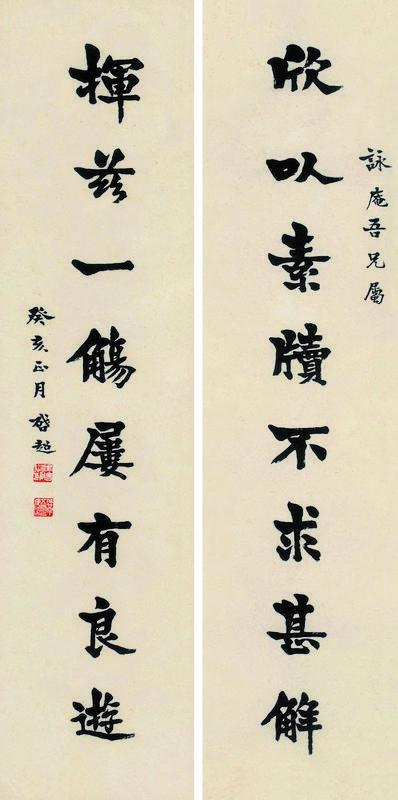 詠庵吾兄屬
欣以素牘不求甚解
揮茲一觴屢有良遊
癸亥正月啓超